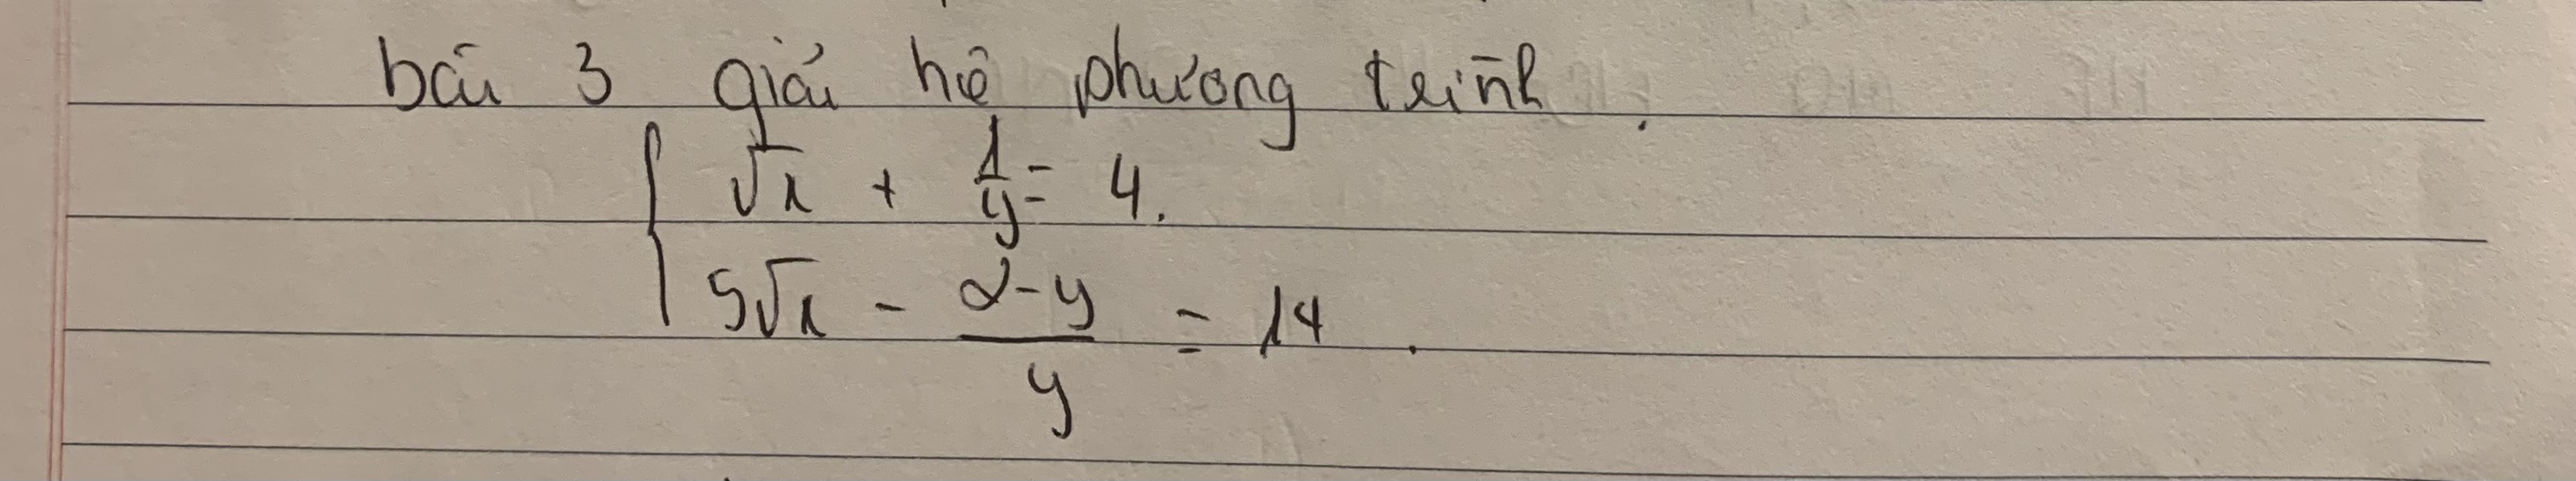 bài 3 giải hệ phương trình.
{ √x + 1/y = 4.
5√x - (2-y)/y = 14.